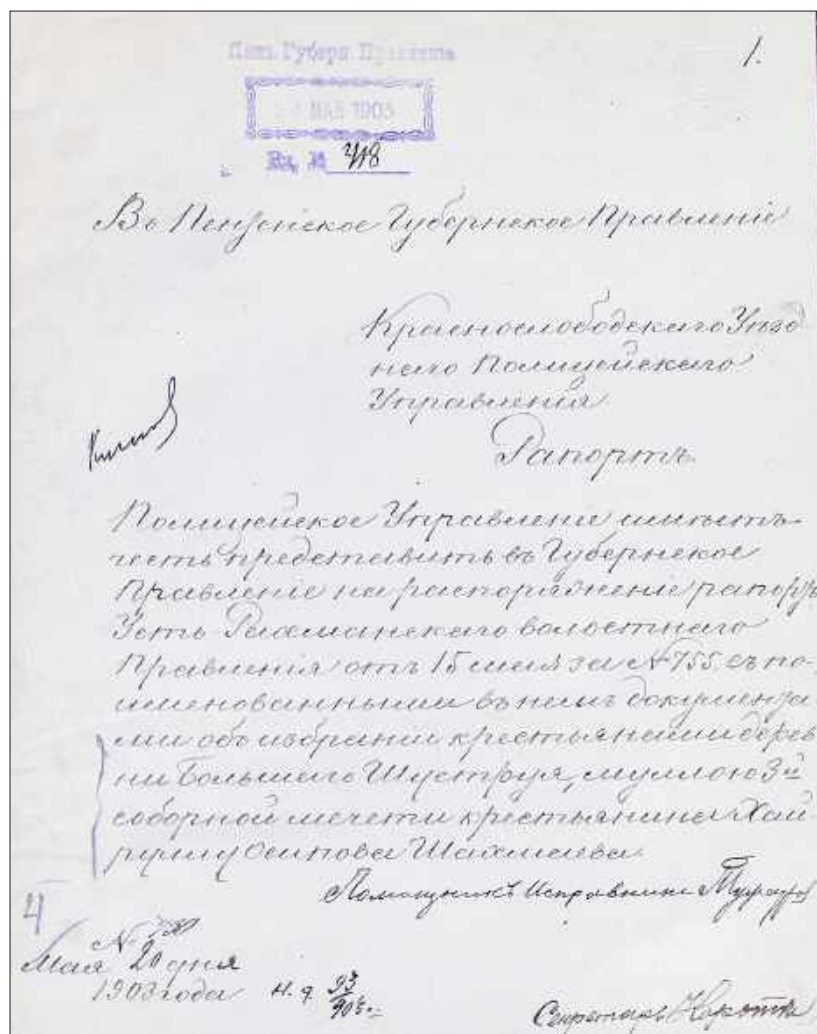 1.
Пенз. Губерн. Правленiе
МАЯ 1903
Вх. № 
Въ Пензенское Губернское Правленiе
Краснослободскаго Уѣзд
наго Полицейскаго
Управленiя
Рапортъ.
Полицейское Управленiе имѣетъ
честь представить въ Губернское
Правленiе на распоряженiе рапортъ
Усть Рахманскаго волостнаго
Правленiя отъ 15 мая за № 755 съ по-
именованными въ немъ документа
ми объ избранiи крестьянами дерев
ни Большаго Шуструя, муллою 3й
соборной мечети крестьянина Хай
Осипова
Помощникъ Исправника
№
Мая 20 дня
1903 года
Секретарь